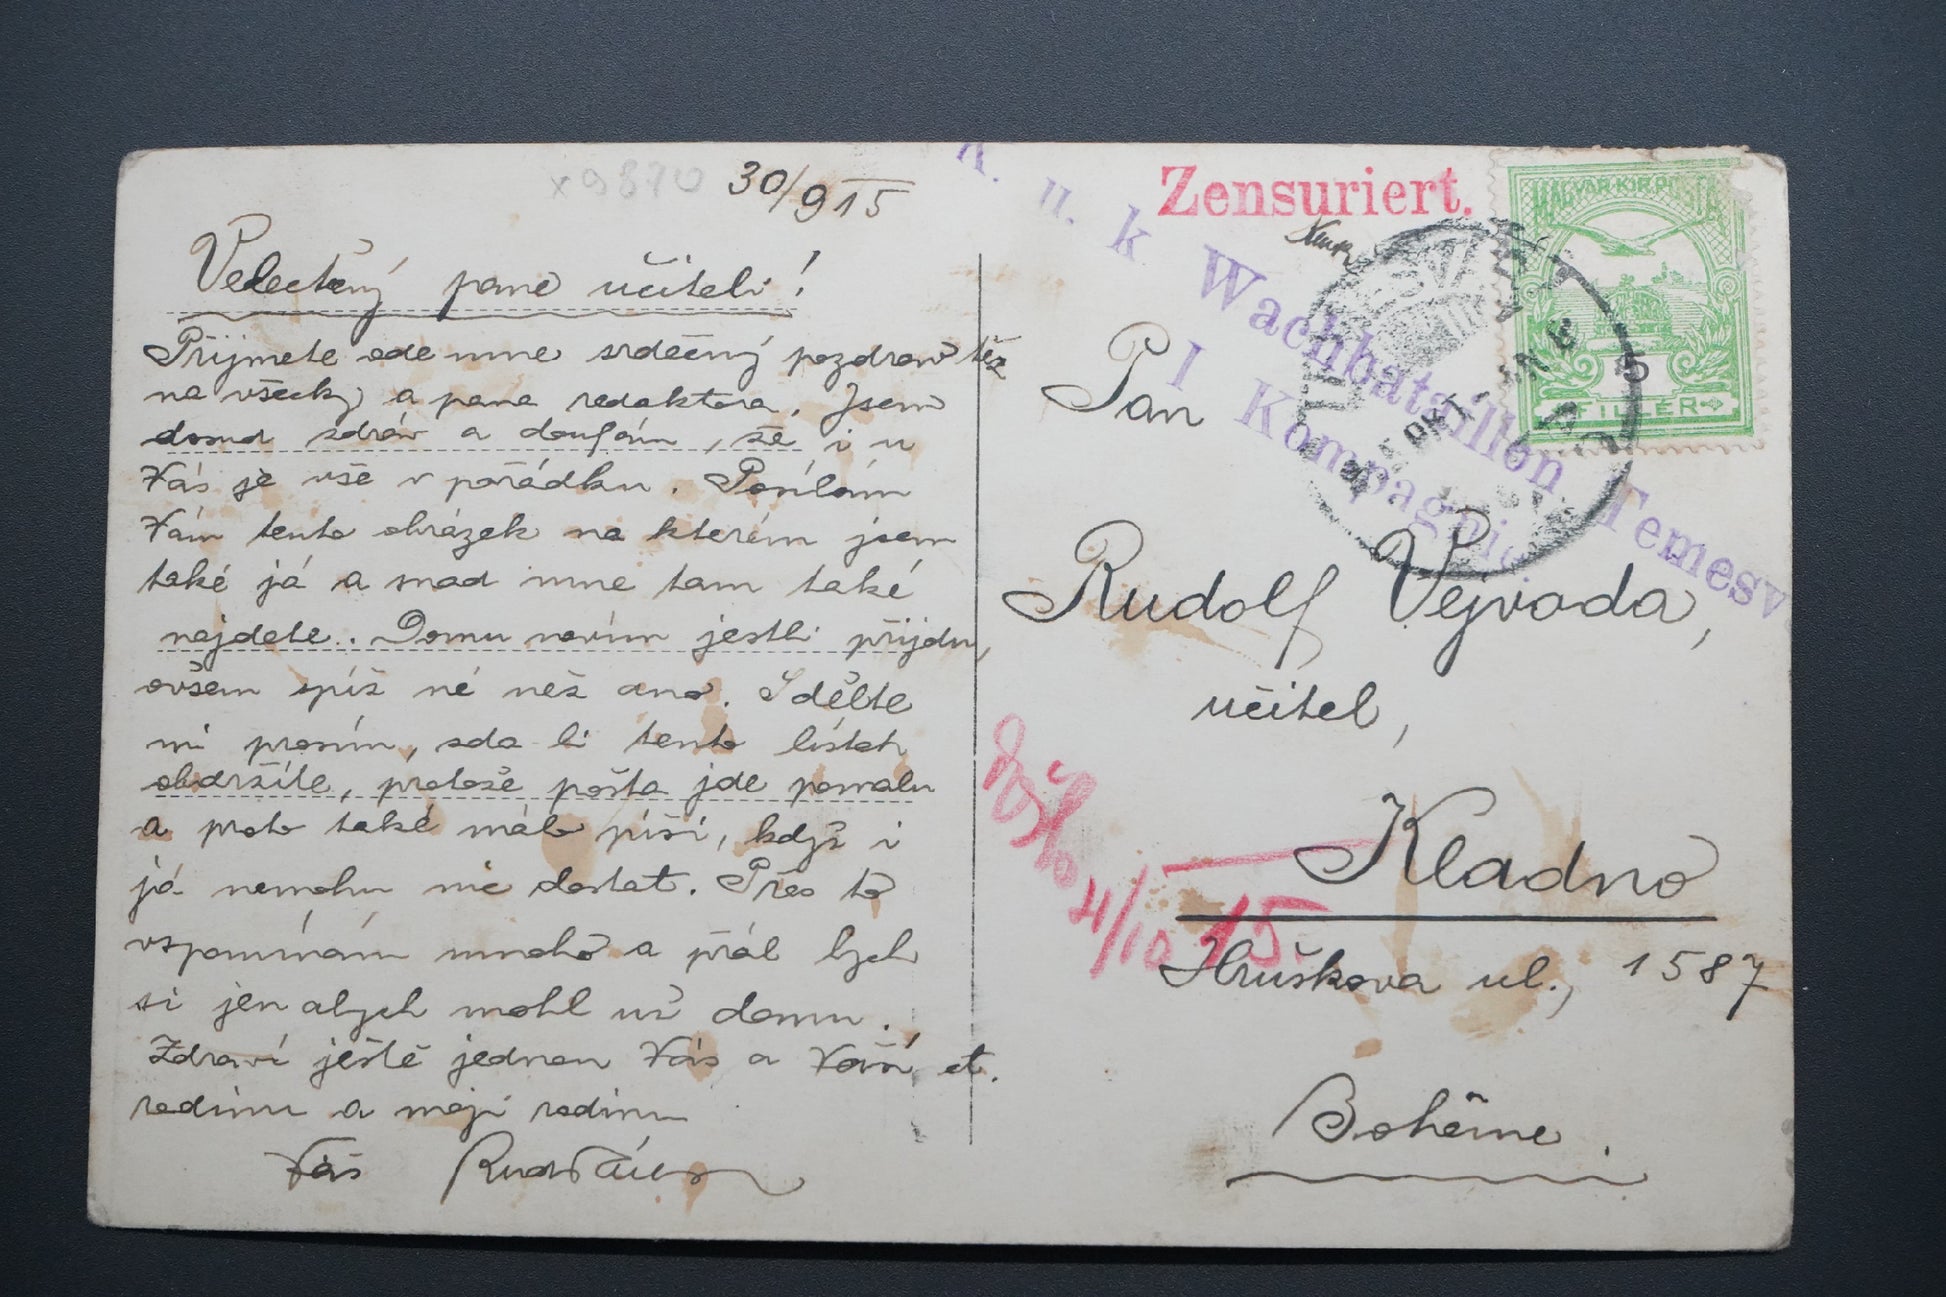 x9870
30/9 15
Velectěný pane učiteli!
Přijmete ode mne srdečný pozdrav též
na všecky a pana redaktora. Jsem
dosud zdráv a doufám, že i u
Vás je vše v pořádku. Posílám
Vám tento obrázek na kterém jsem
také já a snad mne tam také
najdete. Domu nevím jestli přijdu,
ovšem spíš né než ano. Sdělte
mi prosím, zda li tento lístek
obdržíte, protože pošta jde pomalu
a proto také málo píši, když i
já nemohu nic dostat. Přes to
vzpomínám mnoho a přál bych
si jen abych mohl už domu.
Zdraví ještě jednou Vás a Vaší ct.
rodinu a moji rodinu
Váš Rud
Zensuriert.
k. u. k Wachbataillon Temesv
I Kompagnie.
MAGYAR KIR. POSTA
5
FILLÉR
Pan
Rudolf Vejvoda,
učitel,
Kladno
Hruškova ul., 1587
Bohême.
4/10 15.